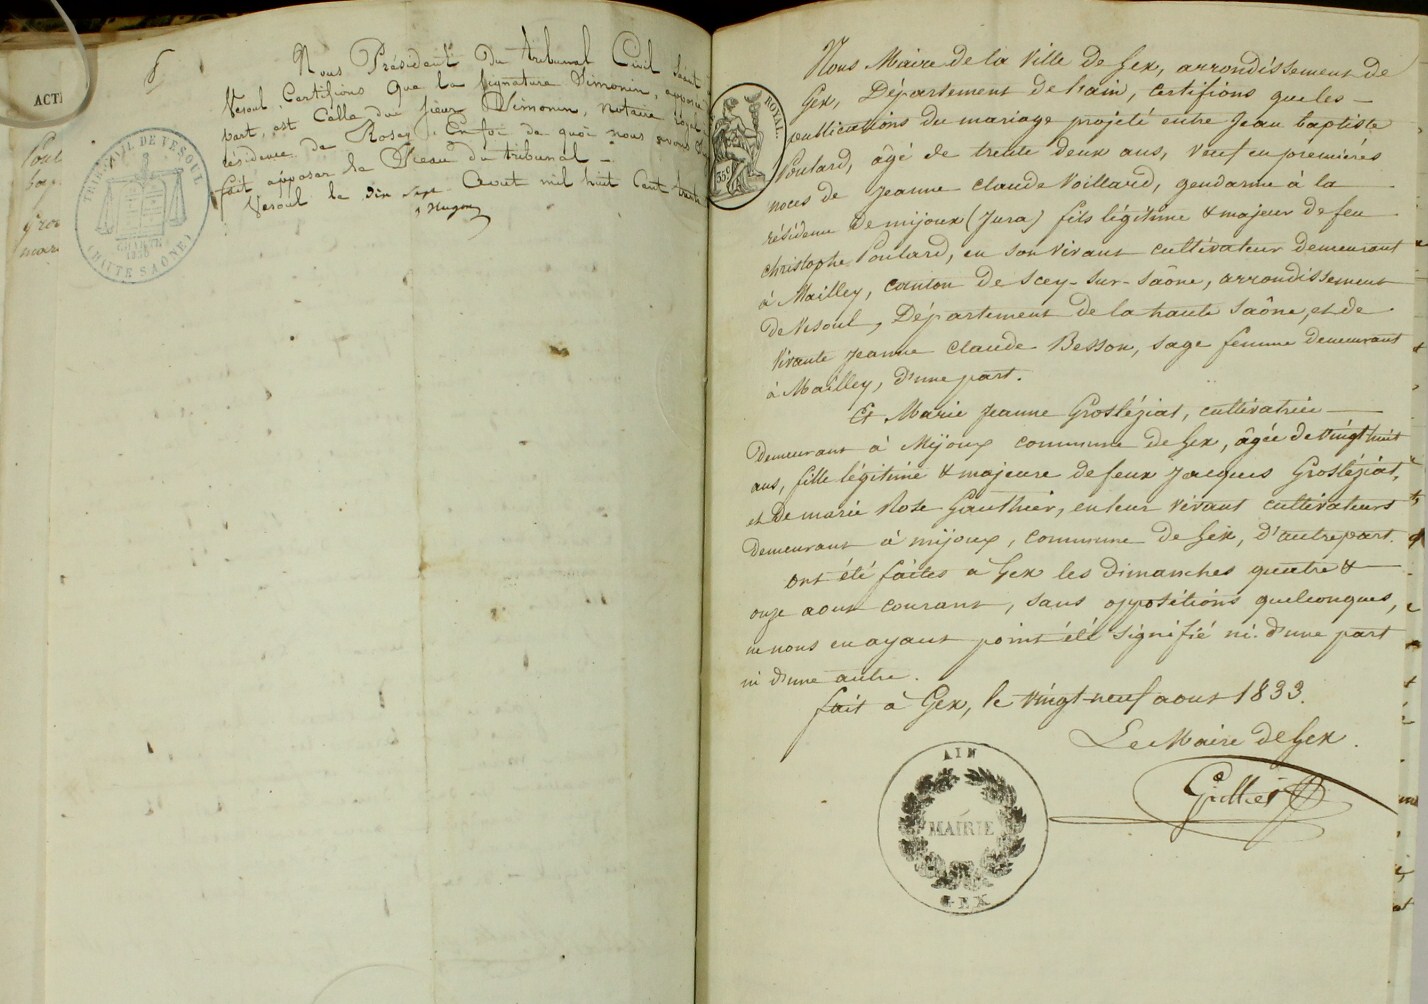 ACT
Nous Président du tribunal Civil Séant
Vesoul Certifions que la signature Simonin, apposée
part, est Celle du sieur Simonin, Notaire royal
résidence de Rosey. En foi de quoi nous avons
fait apposer le Sceau du tribunal -
Vesoul le dix sept Aout mil huit Cent trente
Hugon
TRIBUNAL DE VESOUL
CHARTE
1830
(HAUTE SAÔNE)
ROYAL.
35c
Nous Maire de la Ville de Gex, arrondissement de
Gex, Département de l'ain, certifions que les -
publications du mariage projeté entre Jean baptiste
Poulard, âgé de trente deux ans, veuf en premières
noces de Jeanne Claude Voillard, gendarme à la
résidence de mijoux (Jura) fils légitime & majeur de feu
christophe Poulard, en son vivant cultivateur demeurant
à Mailley, canton de Scey-sur-Saône, arrondissement
de Vesoul, Département de la haute Saône, et de
vivante Jeanne Claude Besson, sage femme demeurant
à Mailley, d'une part.
Et Marie Jeanne Grosléziat, cultivatrice
demeurant à Mijoux commune de Gex, âgée de vingt huit
ans, fille légitime & majeure de feux Jacques Grosléziat,
et de marie Rose Gauthier, en leur vivant cultivateurs
demeurant à mijoux, commune de Gex, d'autre part.
ont été faites a Gex les dimanches quatre &
onze aout courant, sans oppositions quelconques,
ne nous en ayant point été signifié ni d'une part
ni d'une autre.
fait à Gex, le vingt-neuf aout 1833.
Le Maire de Gex.
AIN
MAIRIE
GEX